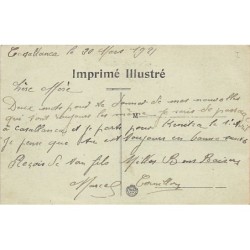 Casablanca le 30 Mars 1911
Imprimé Illustré
Chère Mère
Deux mots pour te donner de mes nouvelles
qui sont toujours les même je suis de passage
à Casablanca et je parts pour Kenitra le 1er
Je pense que vous est toujours en bonne santé
Reçois de ton fils Milles Bons Baisers
Marcel